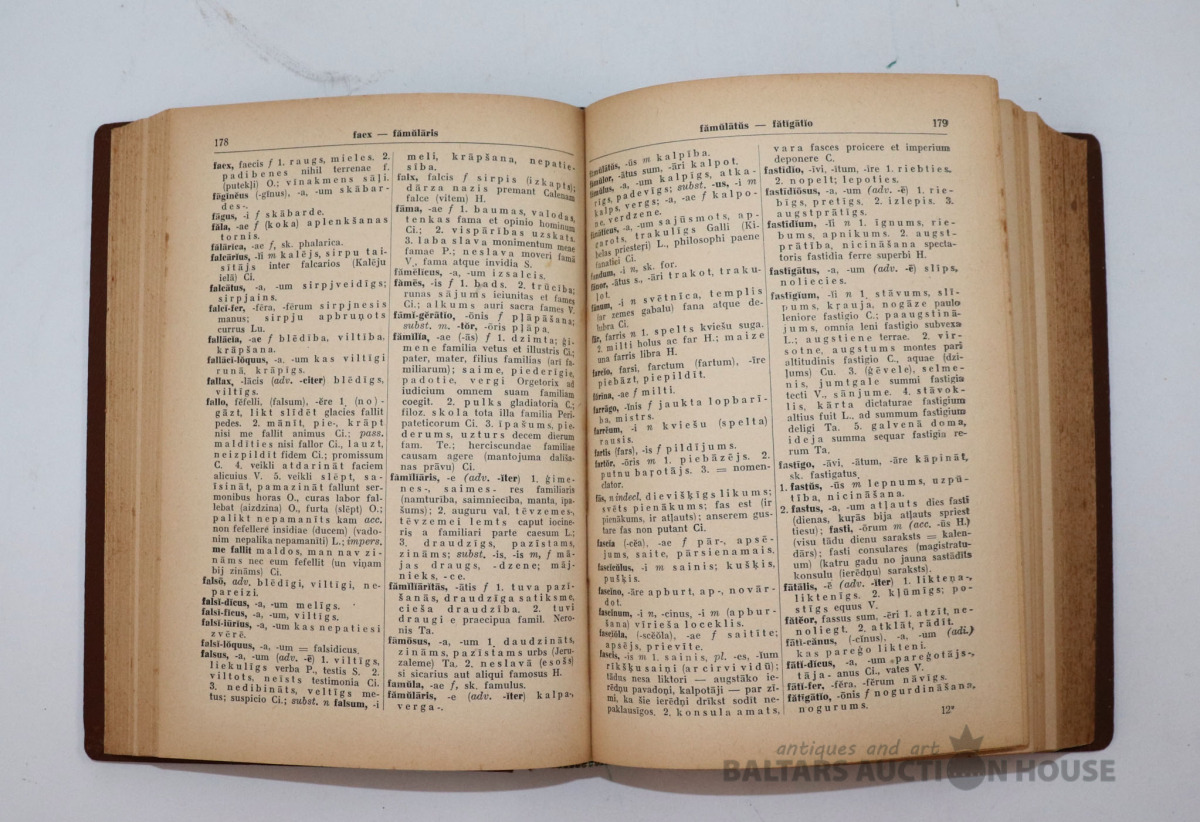 178
faex — fāmŭlāris
faex, faecis f 1. raugs, mieles. 2.
padibenes nihil terrenae f.
(putekļi) O.; vīnakmens sāļi.
fāgĭnĕus (-gĭnus), -a, -um skābar-
des-.
fāgus, -i f skābarde.
făla, -ae f (koka) aplenkšanas
tornis.
fălārĭca, -ae f, sk. phalarica.
falcārĭus, -ĭi m kalējs, sirpu tai-
sītājs inter falcarios (Kalēju
ielā) Ci.
falcātus, -a, -um sirpjveidīgs;
sirpjains.
falcĭ-fer, -fĕra, -fĕrum sirpjnesis
manus; sirpju apbruņots
currus Lu.
fallācĭa, -ae f blēdība, viltība,
krāpšana.
fallācĭ-lŏquus, -a, -um kas viltīgi
runā, krāpīgs.
fallax, -lācis (adv. -cĭter) blēdīgs,
viltīgs.
fallo, fĕfelli, (falsum), -ĕre 1. (no)-
gāzt, likt slīdēt glacies fallit
pedes. 2. mānīt, pie-, krāpt
nisi me fallit animus Ci.; pass.
maldīties nisi fallor Ci., lauzt,
neizpildīt fidem Ci.; promissum
C. 4. veikli atdarināt faciem
alicuius V. 5. veikli slēpt, sa-
īsināt, pamazināt fallunt ser-
monibus horas O., curas labor fal-
lebat (aizdzina) O., furta (slēpt) O.;
palikt nepamanīts kam acc.
non fefellere insidiae (ducem) (vado-
nim nepalika nepamanīti) L.; impers.
me fallit maldos, man nav zi-
nāms nec eum fefellit (un viņam
bij zināms) Ci.
falsō, adv. blēdīgi, viltīgi, ne-
pareizi.
falsĭ-dĭcus, -a, -um melīgs.
falsĭ-fĭcus, -a, -um, viltīgs.
falsĭ-iūrĭus, -a, -um kas nepatiesi
zvērē.
falsĭ-lŏquus, -a, -um = falsidicus.
falsus, -a, -um (adv. -ē) 1. viltīgs,
liekulīgs verba P., testis S. 2.
viltots, neīsts testimonia Ci.
3. nedibināts, veltīgs me-
tus; suspicio Ci.; subst. n falsum, -i
meli, krāpšana, nepatie-
sība.
falx, falcis f sirpis (izkapts);
dārza nazis premant Calenam
falce (vitem) H.
fāma, -ae f 1. baumas, valodas,
tenkas fama et opinio hominum
Ci.; 2. vispārības uzskats.
3. laba slava monimentum meae
famae P.; neslava moveri famā
V., fama atque invidia S.
fămēlĭcus, -a, -um izsalcis.
fămēs, -is f 1. bads. 2. trūcība;
runas sājums ieiunitas et fames
Ci.; alkums auri sacra fames V.
fāmĭ-gĕrātĭo, -ōnis f pļāpāšana;
subst. m. -tŏr, -ōris pļāpa.
fămĭlĭa, -ae (-ās) f 1. dzimta; ģi-
mene familia vetus et illustris Ci.;
pater, mater, filius familias (arī fa-
miliarum); saime, piederīgie,
padotie, vergi Orgetorix ad
iudicium omnem suam familiam
coegit. 2. pulks gladiatoria C.;
filoz. skola tota illa familia Peri-
pateticorum Ci. 3. īpašums, pie-
derums, uzturs decem dierum
fam. Te.; herciscundae familiae
causam agere (mantojuma dalīša-
nas prāvu) Ci.
fămĭlĭāris, -e (adv. -ĭter) 1. ģime-
nes-, saimes- res familiaris
(namturība, saimniecība, manta, īpa-
šums); 2. auguru val. tēvzemes-,
tēvzemei lemts caput iocine-
ris a familiari parte caesum L.;
3. draudzīgs, pazīstams,
zināms; subst. -is, -is, m f mā-
jas draugs, -dzene; māj-
nieks, -ce.
fămĭlĭārĭtās, -ātis f 1. tuva pazī-
šanās, draudzīga satiksme,
cieša draudzība. 2. tuvi
draugi e praecipua famil. Nero-
nis Ta.
fāmōsus, -a, -um 1. daudzināts,
zināms, pazīstams urbs (Jeru-
zaleme) Ta. 2. neslavā (esošs)
si sicarius aut aliqui famosus H.
fămŭla, -ae f, sk. famulus.
fămŭlāris, -e (adv. -ĭter) kalpa-,
verga-.
fămŭlātŭs — fătīgātĭo
179
fămŭlātŭs, -ūs m kalpība.
fămŭlor, -ātus sum, -āri kalpot.
fămŭlus, -a, -um kalpīgs, atka-
rīgs, padevīgs; subst. -us, -i m
kalps, vergs; -a, -ae f kalpo-
ne, verdzene.
fānātĭcus, -a, -um sajūsmots, ap-
carots, trakulīgs Galli (Ki-
belas priesteri) L., philosophi paene
fanatici Ci.
fandum, -i n, sk. for.
fānor, -ātus s., -āri trakot, traku-
ļot.
fānum, -i n svētnīca, templis
(ar zemes gabalu) fana atque de-
lubra Ci.
făr, farris n 1. spelts kviešu suga.
2. milti holus ac far H.; maize
una farris libra H.
farcĭo, farsi, farctum (fartum), -īre
piebāzt, piepildīt.
fărīna, -ae f milti.
farrāgo, -ĭnis f jaukta lopbarī-
ba, mistrs.
farrĕum, -i n kviešu (spelta)
rausis.
fartis (fars), -is f pildījums.
fartŏr, -ōris m 1. piebāzējs. 2.
putnu barotājs. 3. = nomen-
clator.
fās, n indecl. dievišķīgs likums;
svēts pienākums; fas est (ir
pienākums, ir atļauts); anserem gus-
tare fas non putant Ci.
fascia (-cĕa), -ae f pār-, apsē-
jums, saite, pārsienamais.
fascĭcŭlus, -i m sainis; kušķis,
pušķis.
fascĭno, -āre apburt, ap-, novār-
dot.
fascĭnum, -i n, -cinus, -i m (apbur-
šana) vīrieša loceklis.
fascĭŏla, (-scĕŏla), -ae f saitīte;
apsējs, prievīte.
fascis, -is m 1. sainis, pl. -es, -ĭum
rīkšķu saiņi (ar cirvi vidū);
tādus nesa liktori — augstāko ie-
rēdņu pavadoņi, kalpotāji — par zī-
mi, ka šie ierēdņi drīkst sodīt ne-
paklausīgos. 2. konsula amats,
vara fasces proicere et imperium
deponere C.
fastīdĭo, -īvi, -ītum, -īre 1. riebties.
2. nopelt; lepoties.
fastīdĭōsus, -a, -um (adv. -ē) 1. rie-
bīgs, pretīgs. 2. izlepis. 3.
augstprātīgs.
fastīdĭum, -ĭi n 1. īgnums, rie-
bums, apnikums. 2. augst-
prātība, nicināšana specta-
toris fastidia ferre superbi H.
fastīgātus, -a, -um (adv. -ē) slīps,
noliecies.
fastīgĭum, -ĭi n 1. stāvums, slī-
pums, krauja, nogāze paulo
leniore fastigio C.; paaugstinā-
jums, omnia leni fastigio subvexa
L.; augstiene terrae. 2. vir-
sotne, augstums montes pari
altitudinis fastigio C., aquae (dzi-
ļums) Cu. 3. (ģēvele), selme-
nis, jumtgale summi fastigia
tecti V., sānjume. 4. stāvok-
lis, kārta dictaturae fastigium
altius fuit L., ad summum fastigium
deligi Ta. 5. galvenā doma,
ideja summa sequar fastigia re-
rum Ta.
fastīgo, -āvi, -ātum, -āre kāpināt,
sk. fastigatus.
1. fastŭs, -ūs m lepnums, uzpū-
tība, nicināšana.
2. fastus, -a, -um atļauts dies fasti
(dienas, kurās bija atļauts spriest
tiesu); fasti, -ōrum m (acc. -ūs H.)
(visu tādu dienu saraksts = kalen-
dārs); fasti consulares (magistratu-
um) (katru gadu no jauna sastādīts
konsulu (ierēdņu) saraksts).
fātālis, -ĕ (adv. -ĭter) 1. likteņa-,
liktenīgs. 2. kļūmīgs; po-
stīgs equus V.
fătĕor, fassus sum, -ēri 1. atzīt, ne-
noliegt. 2. atklāt, rādīt.
fātĭ-cănus, (-cĭnus), -a, -um (adj.)
kas pareģo likteni.
fātĭ-dĭcus, -a, -um pareģotājs-,
tāja- anus Ci., vates V.
fātĭ-fer, -fĕra, -fĕrum nāvīgs.
fătīgātĭo, -ōnis f nogurdināšana,
nogurums.
12*
antiques and art
BALTARS AUCTION HOUSE